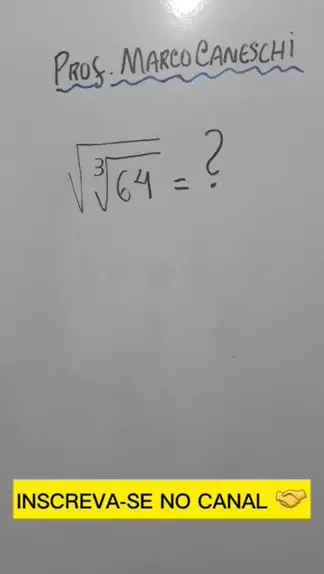 PROF. MARCO CANESCHI
√∛64 = ?
INSCREVA-SE NO CANAL 🤝